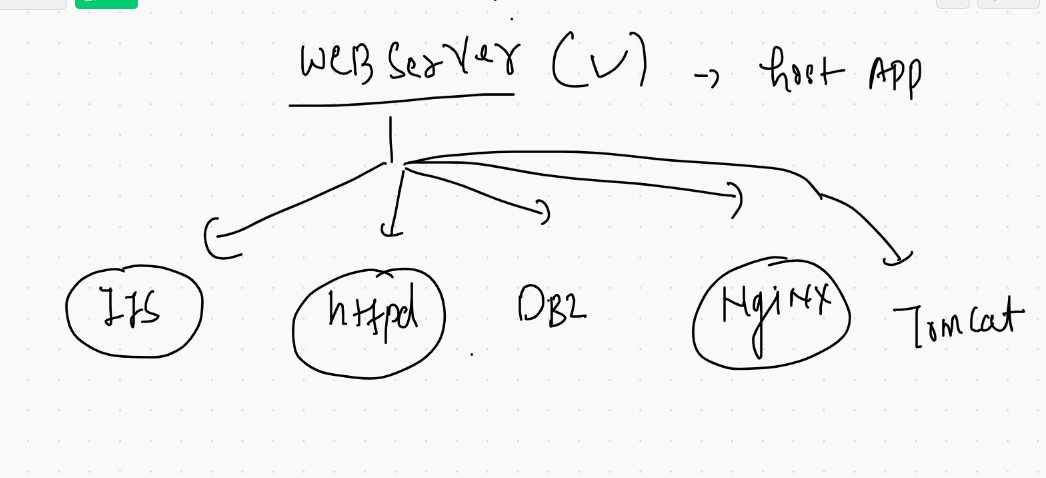 WEB Server (V) → host APP
IIS httpd DB2 NgiNX Tomcat